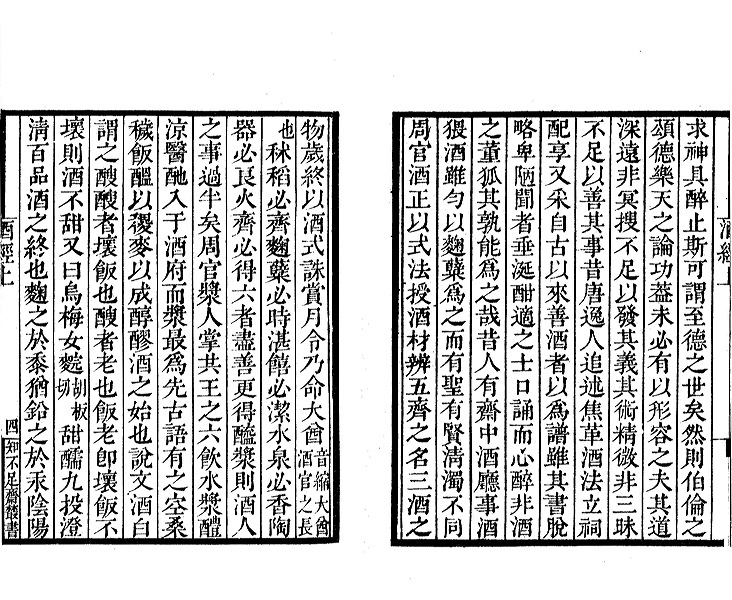 求神具醉止斯可謂至德之世矣然則伯倫之
頌德樂天之論功蓋未必有以形容之夫其道
深遠非冥搜不足以發其義其術精微非三昧
不足以善其事昔唐逸人追述焦革酒法立祠
配享又采自古以來善酒者以為譜雖其書脫
略卑陋聞者垂涎酣適之士口誦而心醉非酒
之董狐其孰能為之哉昔人有齋中酒廳事酒
猥酒雖勻以麴櫱為之而有聖有賢清濁不同
周官酒正以式法授酒材辨五齊之名三酒之
酒經上
物歲終以酒式誅賞月令乃命大酋音縮大酋酒官之長
也秫稻必齊麴櫱必時湛饎必潔水泉必香陶
器必良火齊必得六者盡善更得醯漿則酒人
之事過半矣周官漿人掌共王之六飲水漿醴
涼醫酏入于酒府而漿最為先古語有之空桑
穢飯醞以稷麥以成醇醪酒之始也說文酒白
謂之醙醙者壞飯也醙者老也飯老即壞飯不
壞則酒不甜又曰烏梅女䴷胡板切甜醹九投澄
清百品酒之終也麴之於黍猶鉛之於汞陰陽
酒經上
四
知不足齋叢書